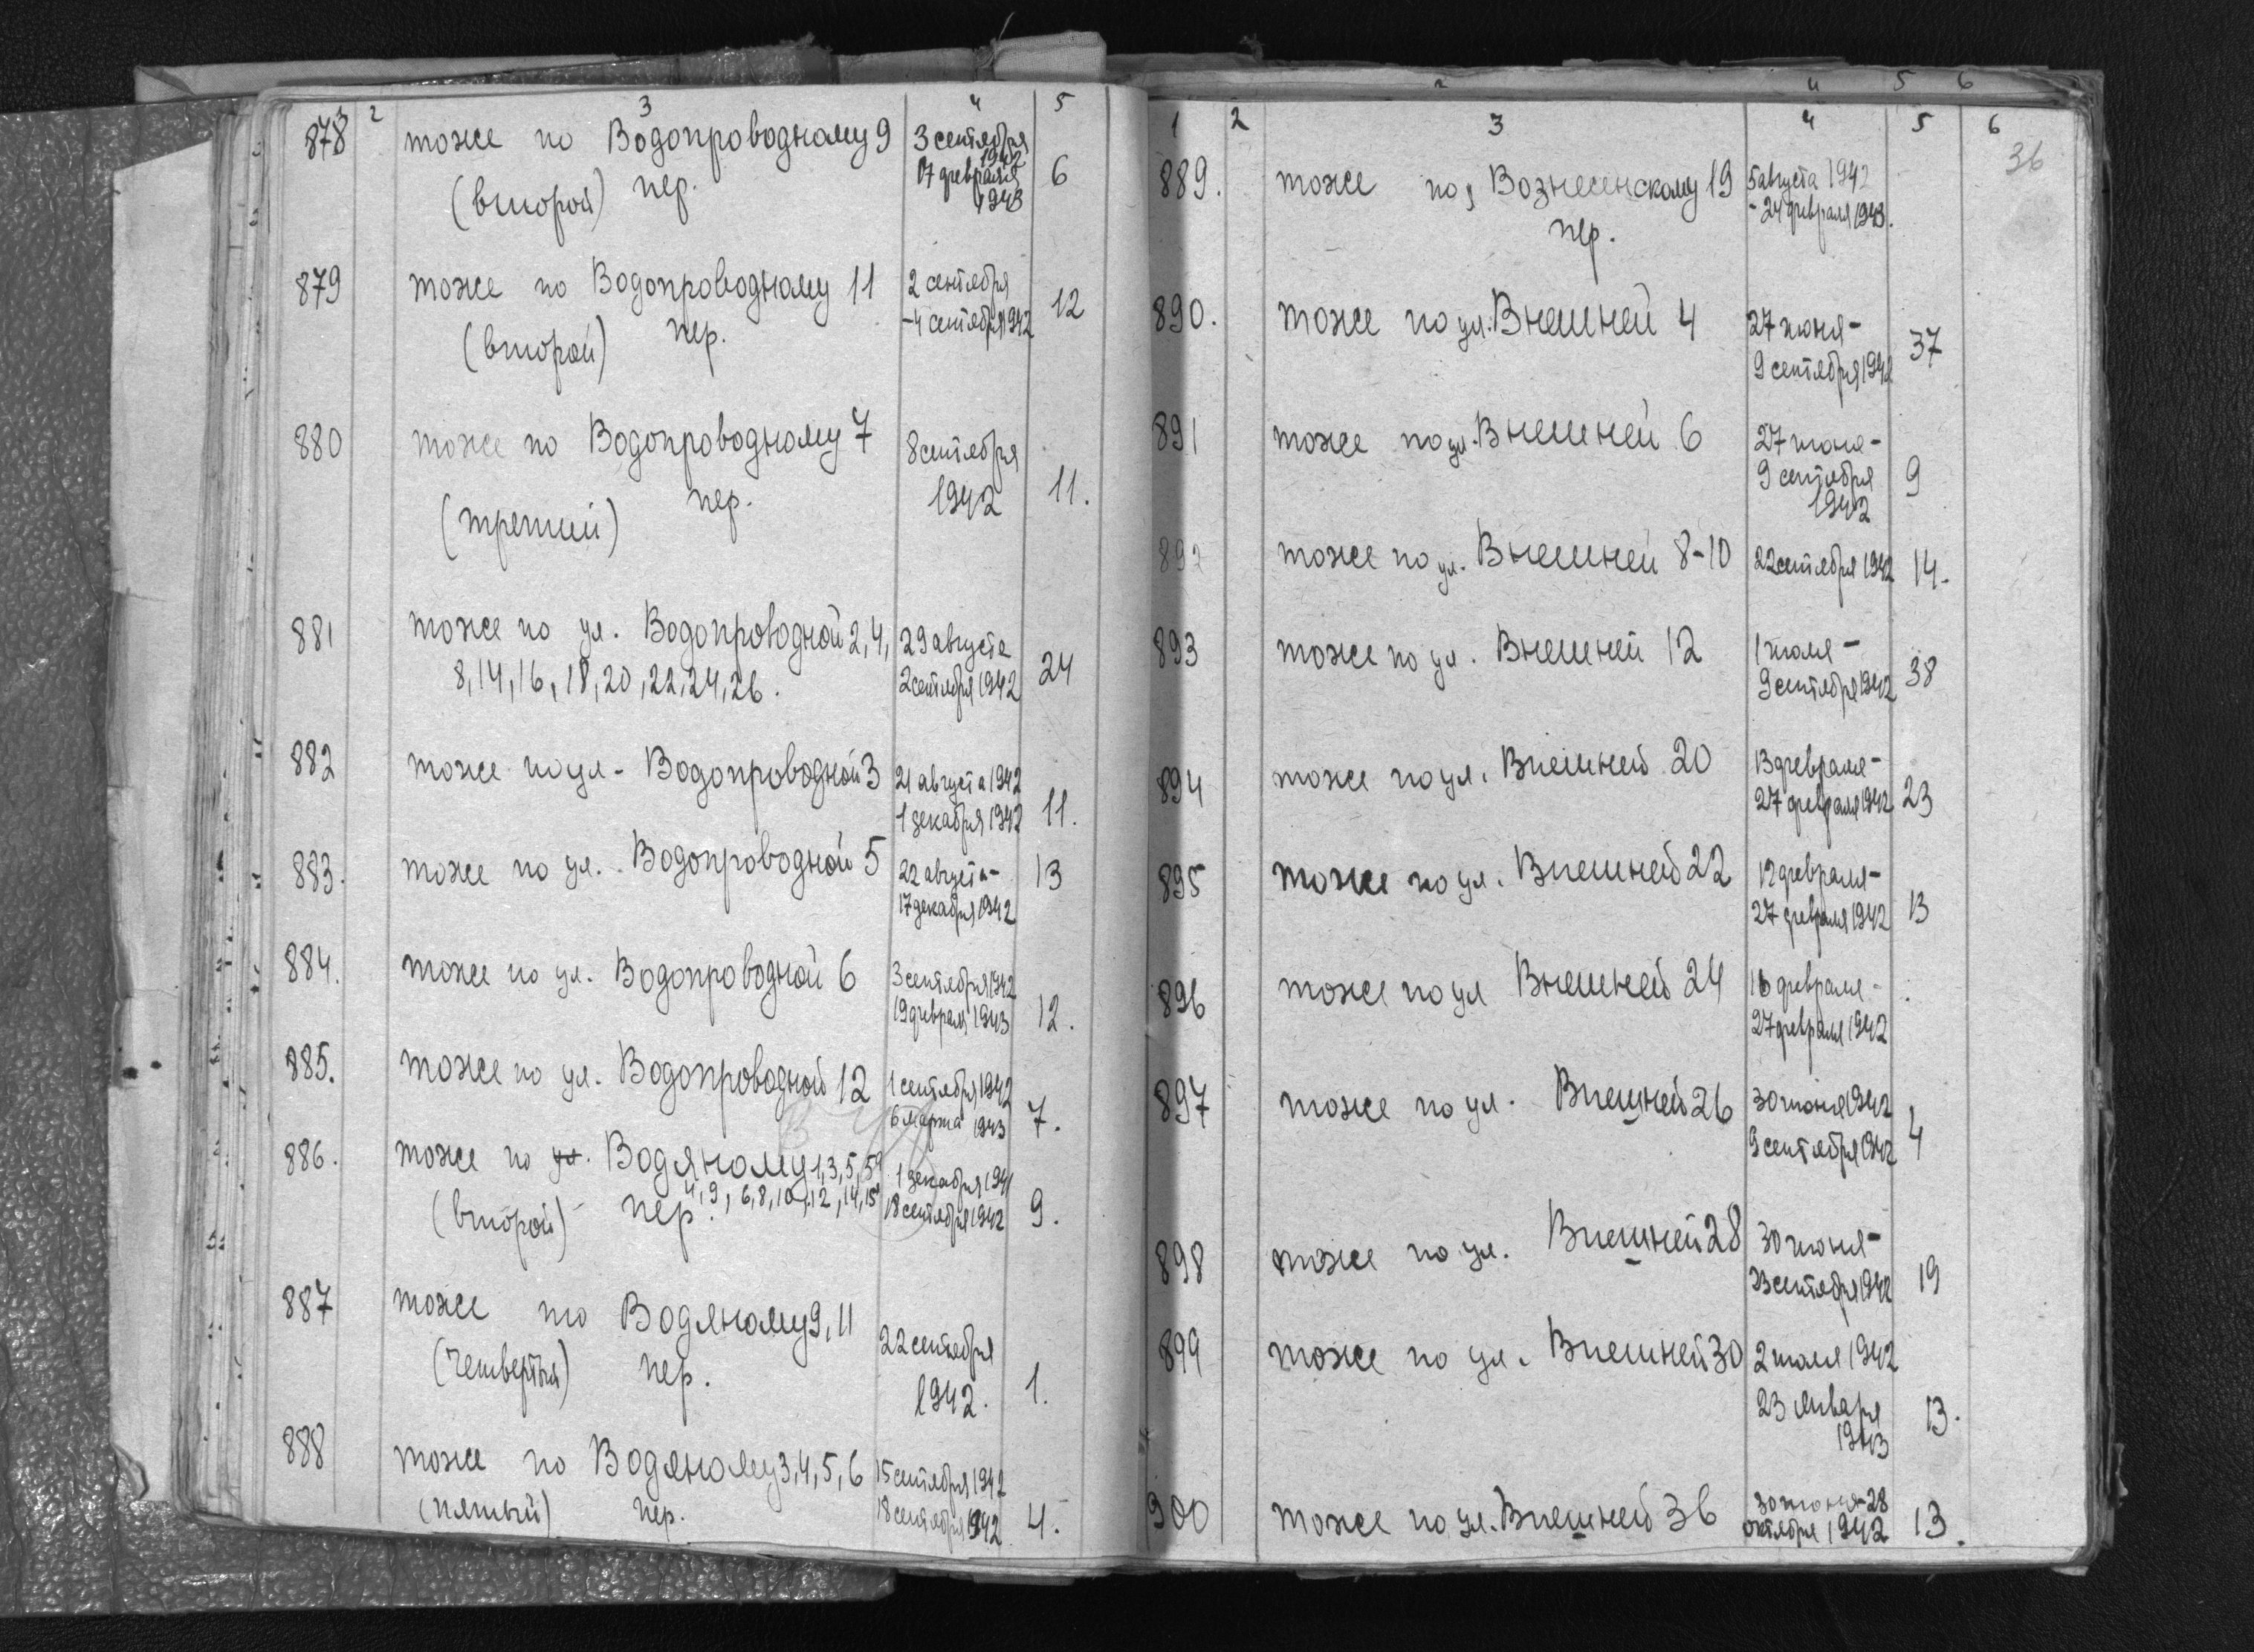 3 4 5
878 2 тоже по Водопроводному 9 3 сентября
1942
(второй) пер. 17 февраля 6
1943
879 тоже по Водопроводному 11 2 сентября
(второй) пер. -4 сентября 1942 12
880 тоже по Водопроводному 7 8 сентября
(третий) пер. 1942 11.
881 тоже по ул. Водопроводной 2, 4, 29 августа
8, 14, 16, 18, 20, 22, 24, 26. 2 сентября 1942 24
882 тоже по ул- Водопроводной 3 21 августа 1942
1 декабря 1942 11.
883. тоже по ул. Водопроводной 5 22 августа- 13
17 декабря 1942
884. тоже по ул. Водопроводной 6 3 сентября 1942
19 февраля 1943 12.
885. тоже по ул. Водопроводной 12 1 сентября 1942
6 марта 1943 7.
886. тоже по ул. Водяному 1, 3, 5, 5а 1 декабря 1941
(второй) пер. 4, 9, 6, 8, 10, 12, 14, 15 18 сентября 1942 9.
887 тоже по Водяному 9, 11 22 сентября
(четвертый) пер. 1942. 1.
888 тоже по Водяному 3, 4, 5, 6 15 сентября 1942
(пятый) пер. 18 сентября 1942 4.
2 4 5 6
1 2 3 4 5 6
36
889. тоже по Вознесенскому 19 5 августа 1942
пер. - 24 февраля 1943.
890. тоже по ул. Внешней 4 27 июня-
9 сентября 1942 37
891 тоже по ул. Внешней 6 27 июня-
9 сентября 9
1942
892 тоже по ул. Внешней 8-10 22 сентября 1942 14.
893 тоже по ул. Внешней 12 1 июля-
9 сентября 1942 38
894 тоже по ул. Внешней 20 13 февраля-
27 февраля 1942 23
895 тоже по ул. Внешней 22 12 февраля-
27 февраля 1942 13
896 тоже по ул Внешней 24 16 февраля-
27 февраля 1942
897 тоже по ул. Внешней 26 30 июня 1942
9 сентября 1942 4
898 тоже по ул. Внешней 28 30 июня-
23 сентября 1942 19
899 тоже по ул. Внешней 30 2 июля 1942
23 января 13.
1943
900 тоже по ул. Внешней 36 30 июня-28
октября 1942 13.